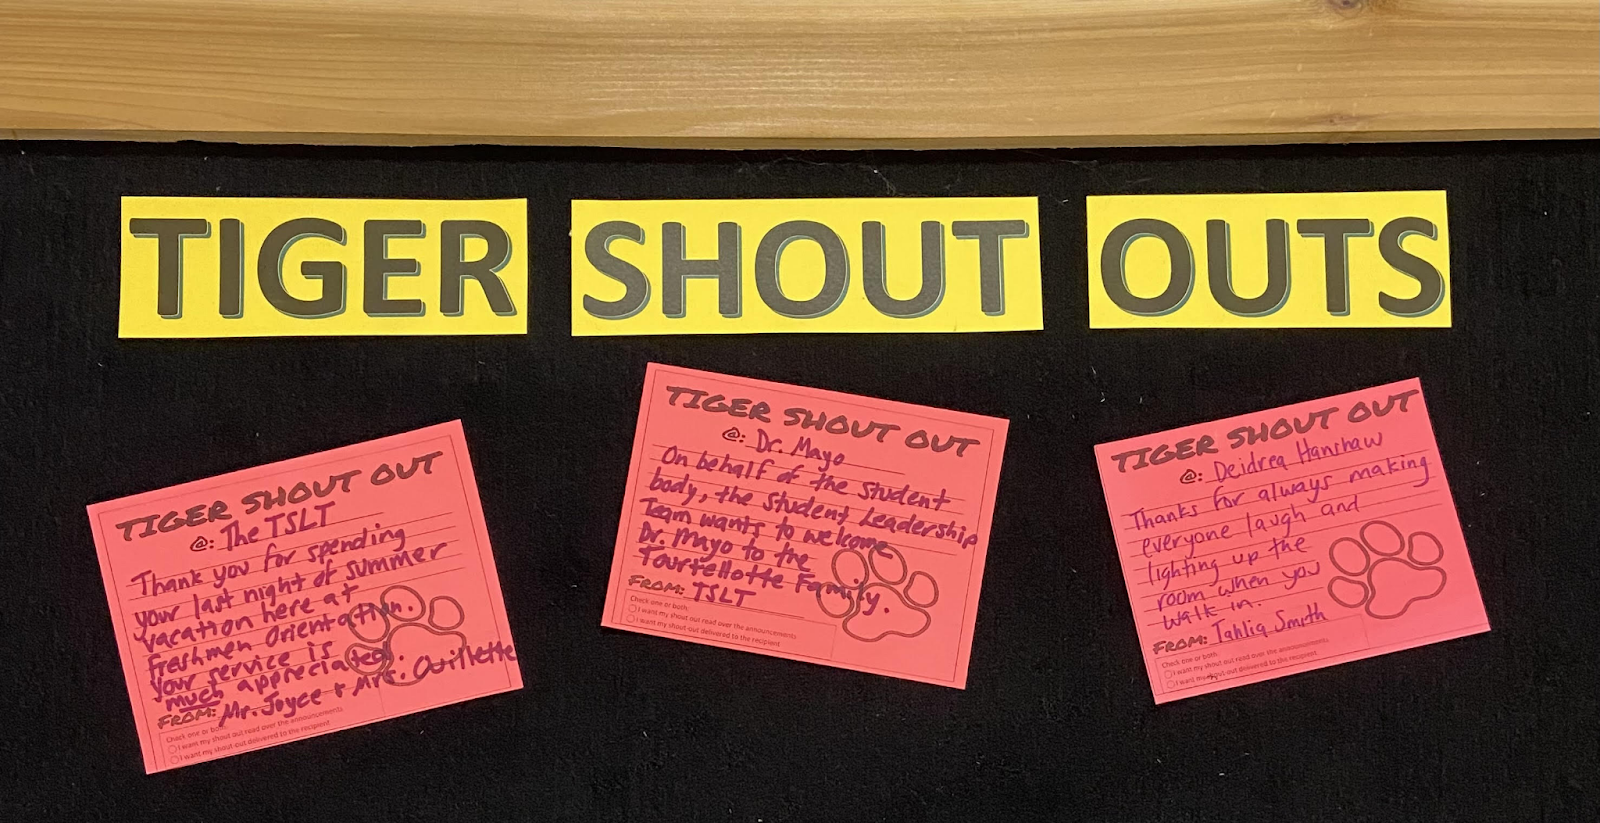 TIGER SHOUT OUTS
TIGER SHOUT OUT
@: The TSLT
Thank you for spending
your last night of summer
vacation here at
freshmen orientation.
your service is
much appreciated!
FROM: Mr. Joyce + Mrs. Ouillette
Check one or both:
I want my shout out read over the announcements
I want my shout-out delivered to the recipient
TIGER SHOUT OUT
@: Dr. Mayo
On behalf of the student
body, the Student Leadership
Team wants to welcome
Dr. Mayo to the
Tourtellotte Family.
FROM: TSLT
Check one or both:
I want my shout out read over the announcements
I want my shout-out delivered to the recipient
TIGER SHOUT OUT
@: Deidrea Hanshaw
Thanks for always making
everyone laugh and
lighting up the
room when you
walk in.
FROM: Tahlia Smith
Check one or both:
I want my shout out read over the announcements
I want my shout-out delivered to the recipient